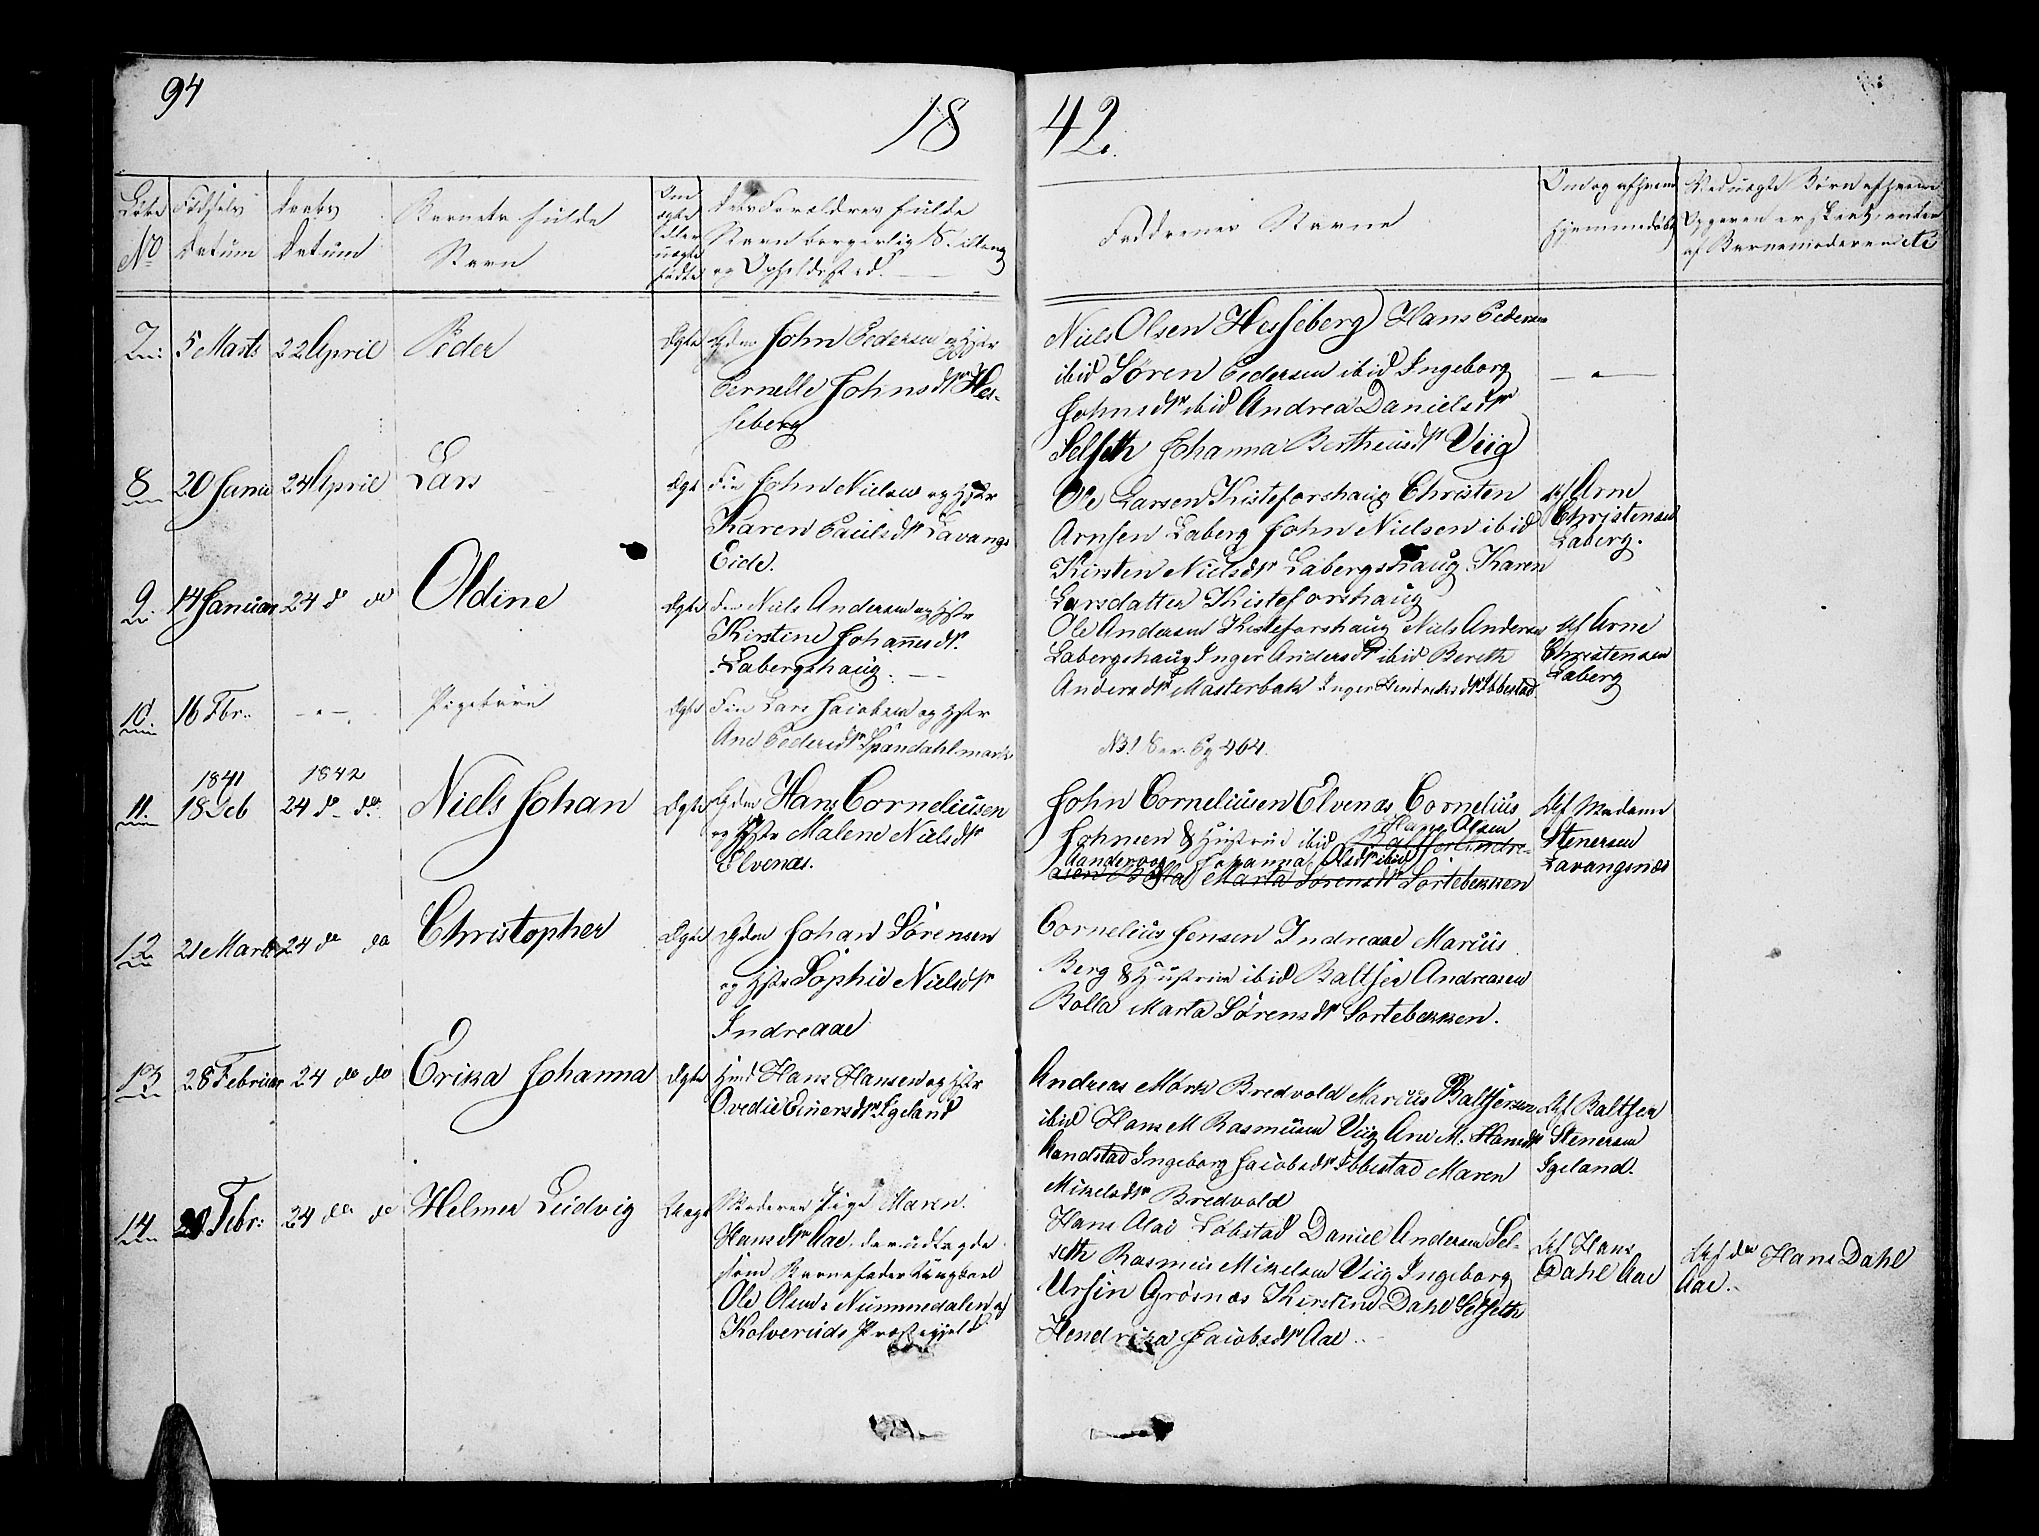 94
18 42.
Løbe No
Fødsels Datum
Daabs Datum
Barnets fulde Navn
Om ægte eller uægte fødte
Dets Forældres fulde
Navn borgerlig Stilling
og Opholdsted.
Faddernes Navne
Om og af hvem
hjemmedøbt
Ved uægte Børn af hvem
Opgaven er skeet, enten
af Barnemoderen etc
7. 5 Marts 22 April Peder Ægte
John Pedersen og Hstr
Pernelle Johnsdtr Hes-
seberg
Niels Olsen Hesseberg Hans Pedersen
ibid Søren Pedersen ibid Ingeborg
Johnsdtr ibid Andrea Danielsdtr
Selseth Johanna Bertheusdtr Viig
8 20 Janu 24 April Lars Ægte
Fin John Nielsen og Hstr
Karen Paulsdtr Lavangs
Eide.
Ole Larsen Kisteforshaug Christen
Arnsen Laberg John Nielsen ibid
Kirsten Nielsdtr Labergshaug Karen
Larsdatter Kisteforshaug
Af Arne
Christensen
Laberg.
9. 14 Januar 24 do do Oldine Ægte
Fin Niels Andersen og Hstr
Kirstine Johannsdtr.
Labergshaug.
Ole Andersen Kisteforshaug Niels Andersen
Labergshaug Inger Andersdtr ibid Bereth
Andersdtr Masterbak Inger Hendriksdtr Ibbestad
Af Arne
Christensen
Laberg
10. 16 Fbr. Pigebarn Ægte
Fin Lars Jacobsen og Hstr
Ane Pedersdtr Spandahlmark
NB! See. Pg 464.
1841 1842
11. 18 Deb 24 do do. Niels Johan Ægte
Gdm Hans Corneliusen
og Hstr Malene Nielsdtr
Elvenæs.
John Corneliusen Elvenæs Cornelius
Johnsen & Hustrue ibid Baltser Andre-
Hans Olsen
Haanderaag Johanna Olsdtr ibid
asen Bolla Marta Sørensdtr Sortebekken
Af Madame
Stenersen
Lavangsnæs
12 21 Marts 24 do do Christopher Ægte
Gdm Johan Sørensen
og Hstr Sophie Nielsdtr
Indreaae
Cornelius Jensen Indreaae Marcus
Berg & Hustrue ibid Baltser Andreasen
Bolla Marta Sørensdtr Sortebekken.
13 28 Februar 24 do do Erika Johanna Ægte
Hmd Hans Hansen og Hstr
Ovedie Einersdtr Igeland
Andreas Mørk Bredvold Marcus Baltsersen
ibid Hans M Rasmusen Viig Ane M. Hansdtr
Aandstad Ingeborg Jacobsdtr Ibbestad Maren
Mikelsdtr Bredvold
Af Baltser
Stenersen
Igeland.
14 28 Febr: 24 do do Helmer Ludvig Uægte
Moderen Pige Maren
Hansdtr Aae, der udlagde
som Barnefader Ungkarl
Ole Olsen Nummedalen af
Kolveruds Præstegjeld
Hans Olai Løbstad Daniel Andersen Sel-
seth Rasmus Mikelsen Viig Ingeborg
Ursin Grøsnæs Kirstine Dahl Selseth
Hendrika Jacobsdtr Aae.
Af Hans
Dahl Aae
Af do Hans Dahl
Aae.